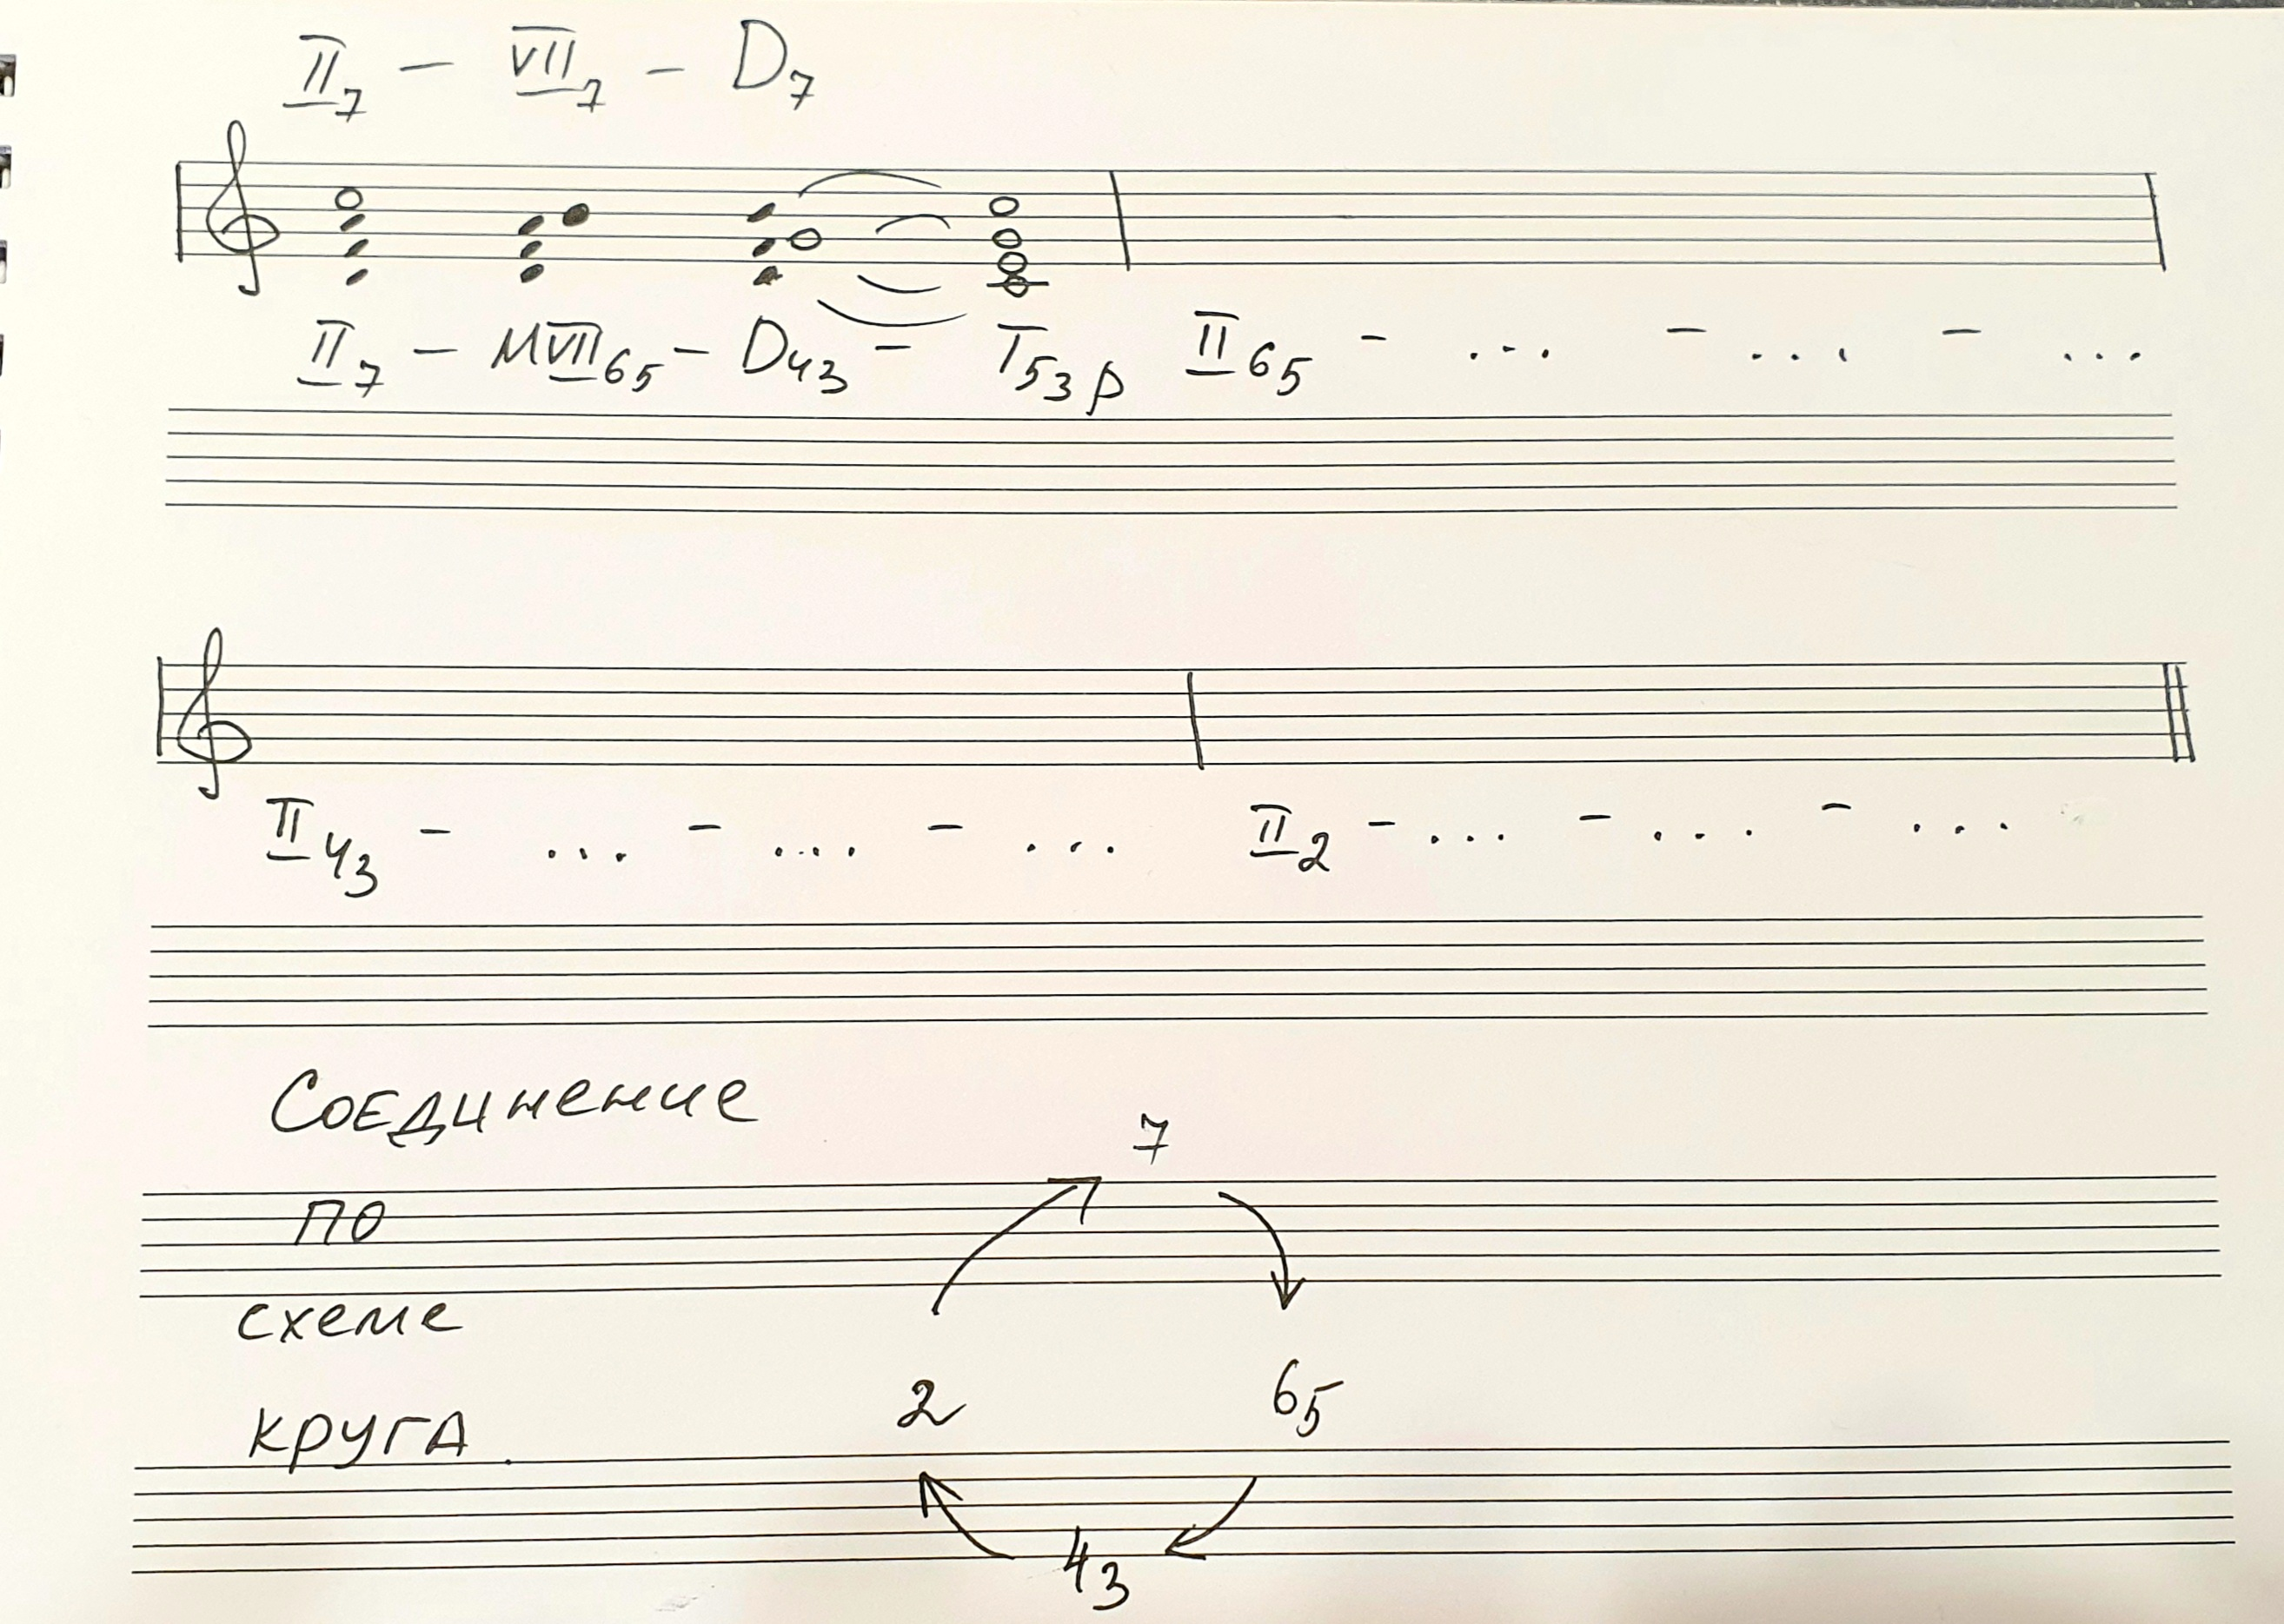 II7 – VII7 – D7
II7 – МVII65 – D43 – T53 р II65 – ... – ... – ...
II43 – ... – ... – ... II2 – ... – ... – ...
Соединение
7
по
схеме
2 65
круга.
43